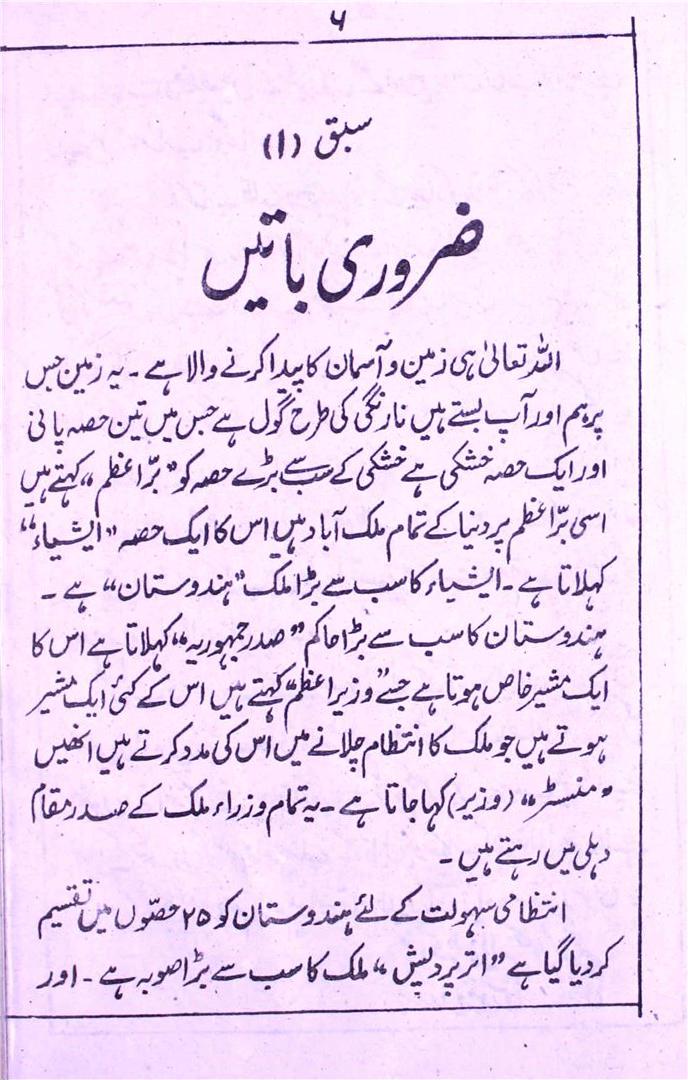 ۶
سبق (۱)
ضروری باتیں
اللہ تعالیٰ ہی زمین و آسمان کا پیدا کرنے والا ہے ۔ یہ زمین جس
پر ہم اور آپ بستے ہیں نارنگی کی طرح گول ہے جس میں تین حصہ پانی
اور ایک حصہ خشکی ہے خشکی کے سب سے بڑے حصہ کو "برّاعظم" کہتے ہیں
اسی برّاعظم پر دنیا کے تمام ملک آباد ہیں اس کا ایک حصہ "ایشیاء"
کہلاتا ہے ۔ ایشیاء کا سب سے بڑا ملک "ہندوستان" ہے ۔
ہندوستان کا سب سے بڑا حاکم "صدر جمہوریہ" کہلاتا ہے اس کا
ایک مشیر خاص ہوتا ہے جسے "وزیر اعظم" کہتے ہیں اس کے کئی ایک مشیر
ہوتے ہیں جو ملک کا انتظام چلانے میں اس کی مدد کرتے ہیں انھیں
"منسٹر" (وزیر) کہا جاتا ہے ۔ یہ تمام وزراء ملک کے صدر مقام
دہلی میں رہتے ہیں ۔
انتظامی سہولت کے لئے ہندوستان کو ۲۵ حصّوں میں تقسیم
کر دیا گیا ہے "اتر پردیش" ملک کا سب سے بڑا صوبہ ہے ۔ اور